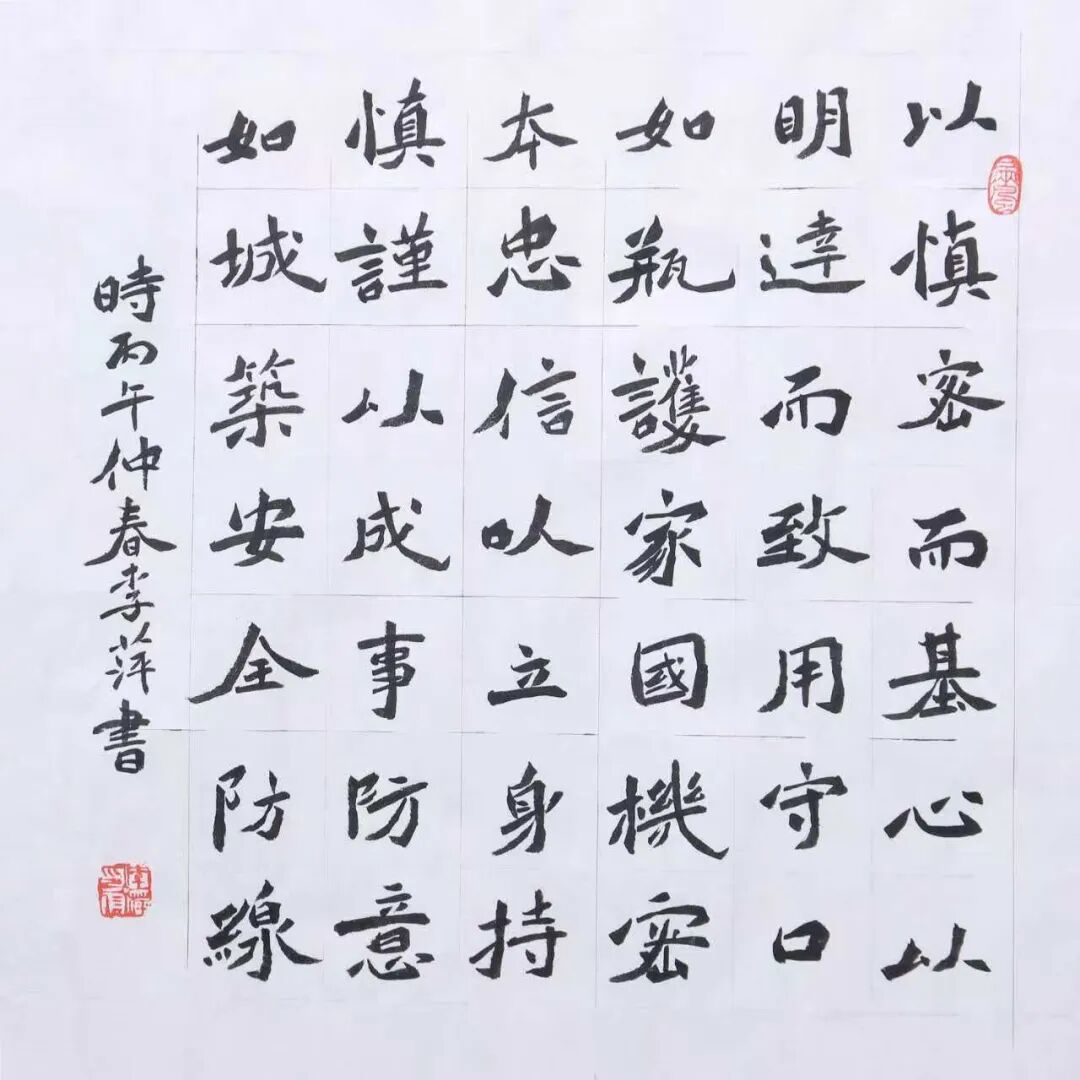 以慎密而基心以
明達而致用守口
如瓶護家國機密
本忠信以立身持
慎謹以成事防意
如城築安全防線
時丙午仲春李萍書